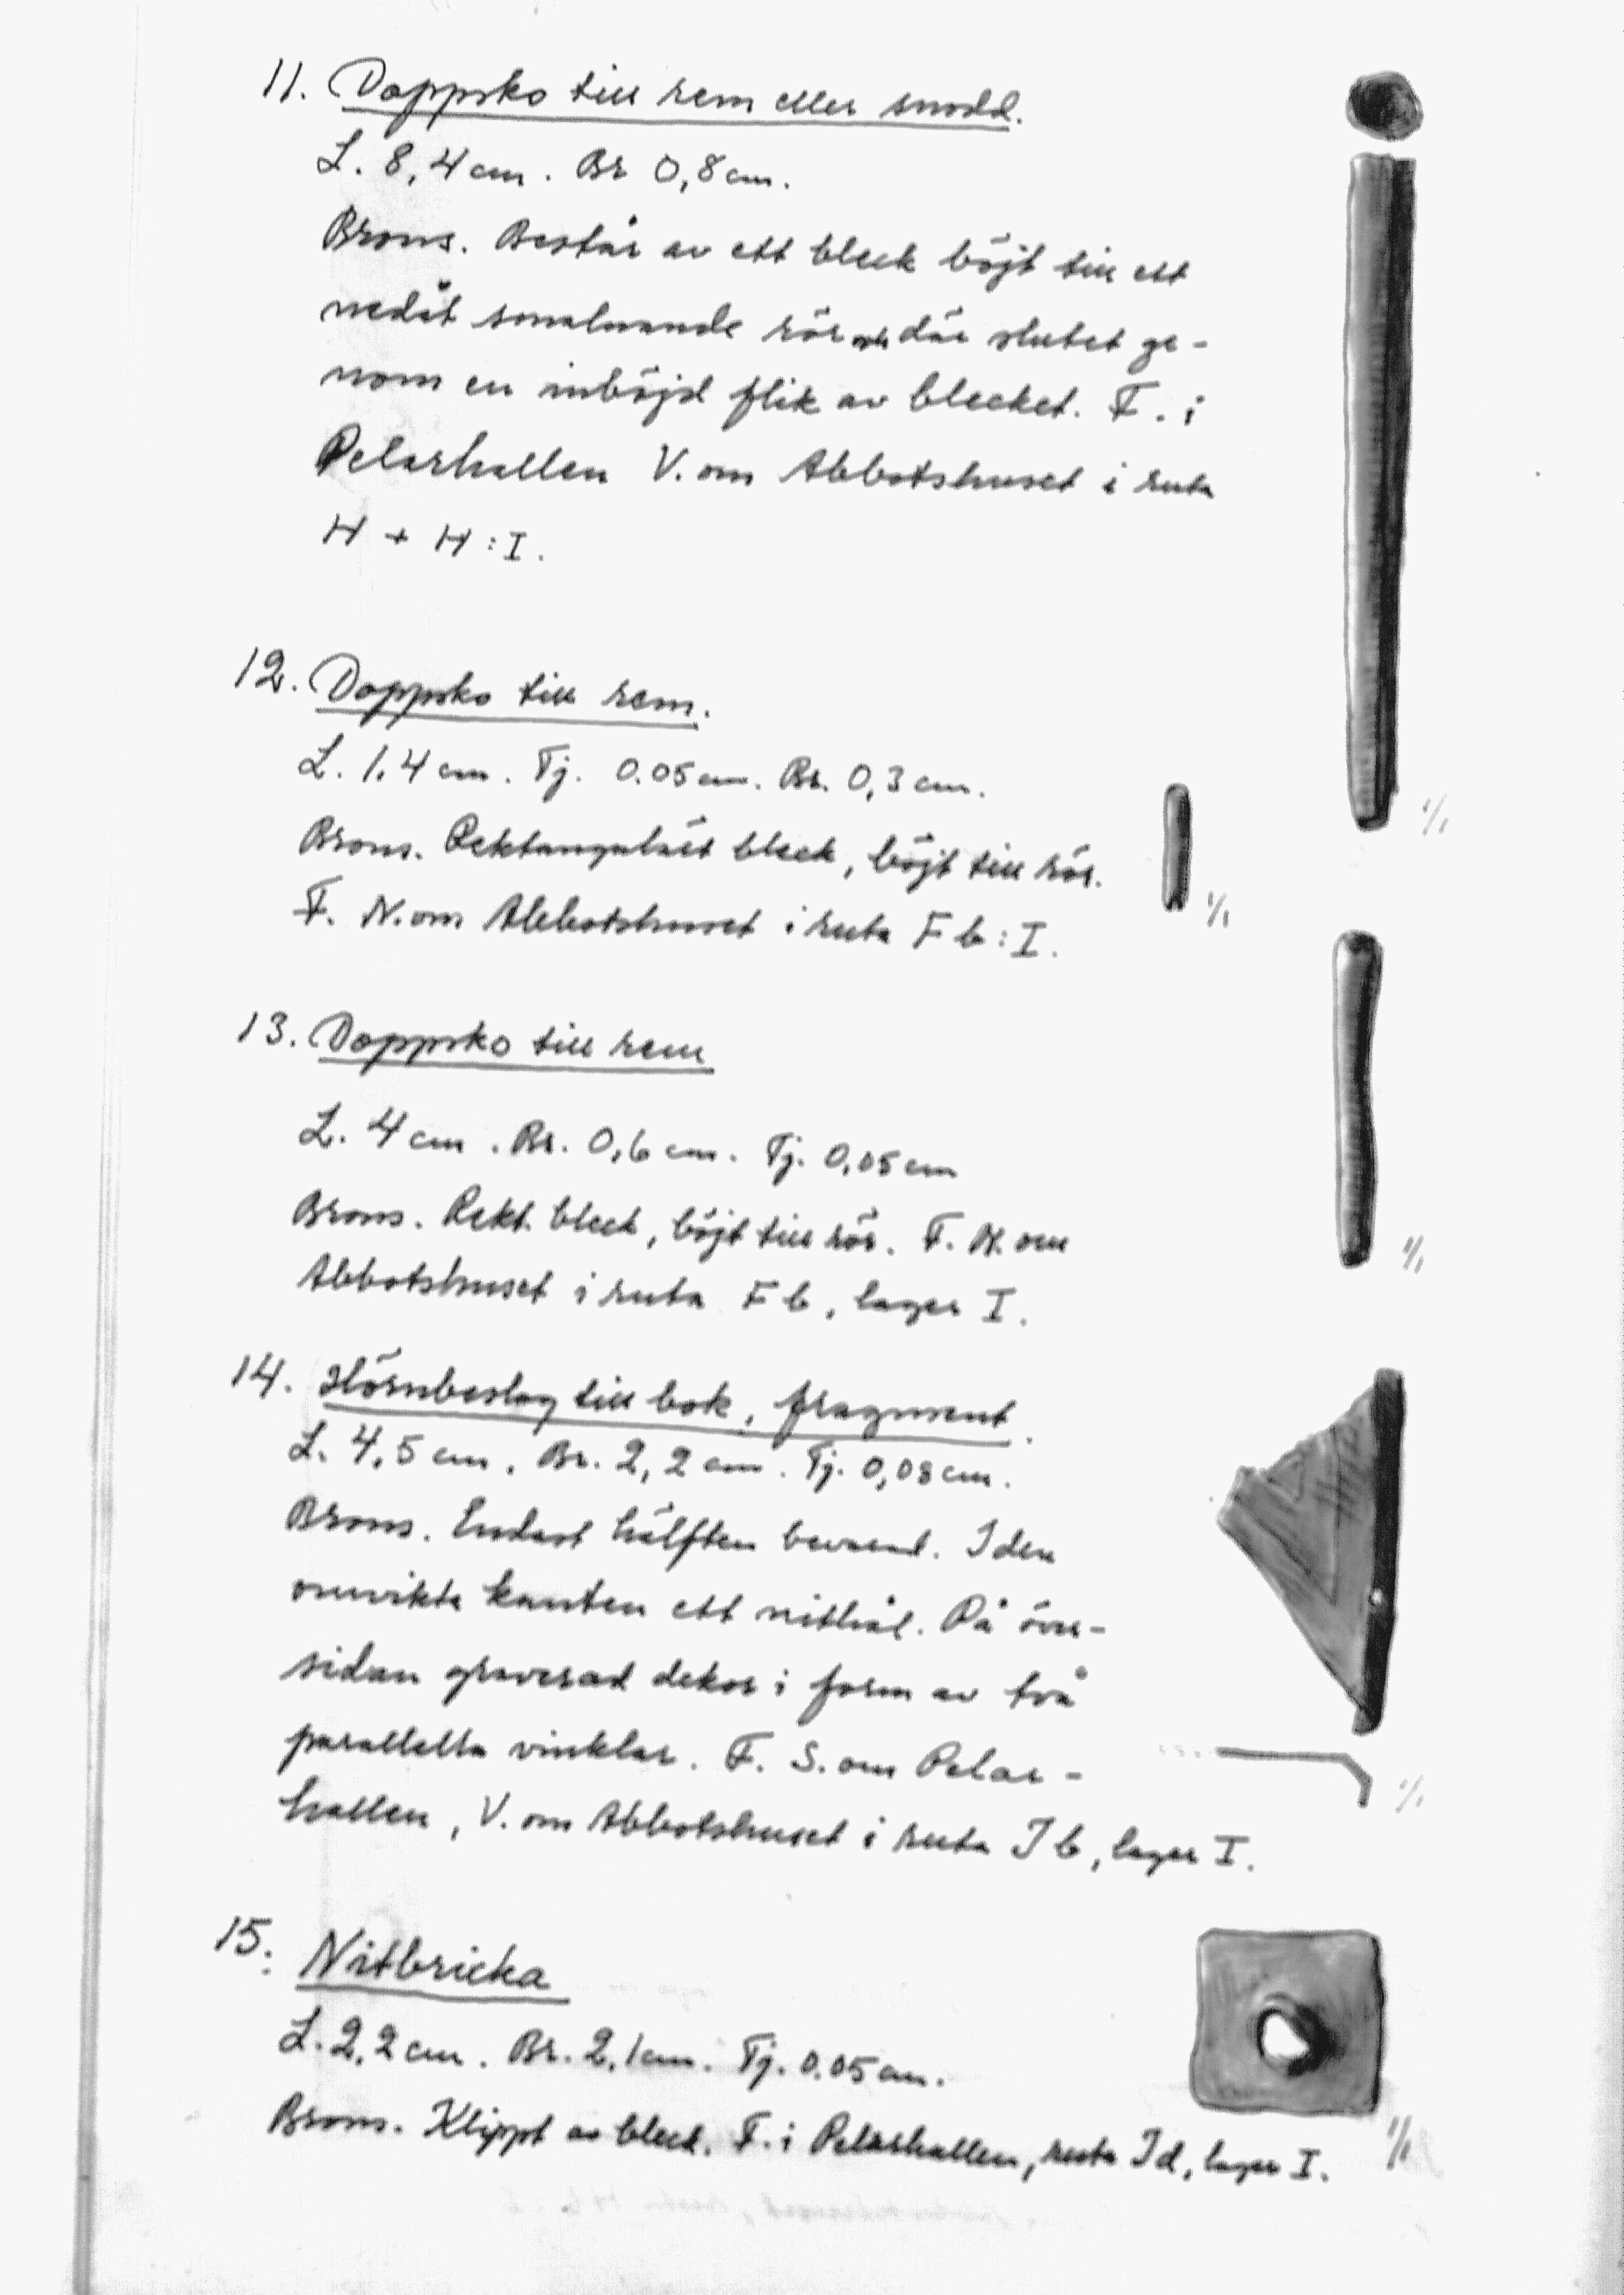 11. Doppsko till rem eller snodd.
L. 8,4 cm. Br 0,8 cm.
Brons. Består av ett bleck böjt till ett
nedåt smalnande rör och där slutet ge-
nom en inböjd flik av blecket. F. i
Pelarhallen V. om Abbotshuset i ruta
H + H : I.
1/1
12. Doppsko till rem.
L. 1,4 cm. Tj. 0.05 cm. Br. 0,3 cm.
Brons. Rektangulärt bleck, böjt till rör.
F. N. om Abbotshuset i ruta F b : I.
1/1
13. Doppsko till rem
L. 4 cm. Br. 0,6 cm. Tj. 0,05 cm
Brons. Rekt. bleck, böjt till rör. F. N. om
Abbotshuset i ruta F b, lager I.
1/1
14. Hörnbeslag till bok, fragment.
L. 4,5 cm. Br. 2,2 cm. Tj. 0,08 cm.
Brons. Endast hälften bevarad. I den
omvikta kanten ett nithål. På över-
sidan graverad dekor i form av två
parallella vinklar. F. S. om Pelar-
hallen, V. om Abbotshuset i ruta I b, lager I.
1/1
15. Nitbricka
L. 2,2 cm. Br. 2,1 cm. Tj. 0.05 cm.
Brons. Klippt av bleck. F. i Pelarhallen, ruta I d, lager I.
1/1